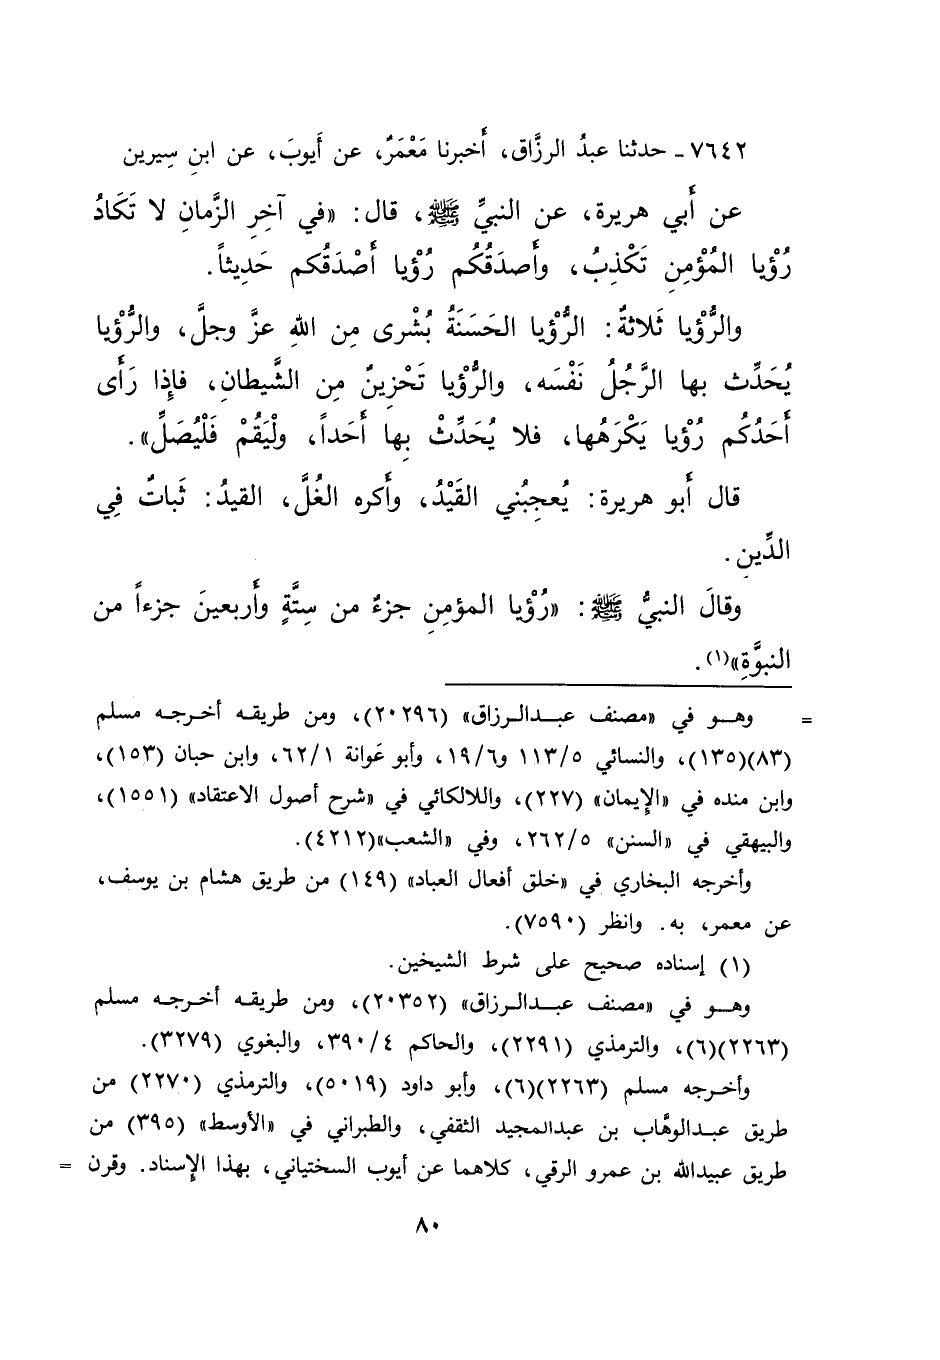 ٧٦٤٢ - حدثنا عبدُ الرزَّاق، أَخبرنا مَعْمَرٌ، عن أَيوبَ، عن ابنِ سِيرين
عن أَبي هريرة، عن النبيِّ ﷺ، قال: «في آخِرِ الزَّمانِ لا تَكَادُ
رُؤيا المُؤْمِنِ تَكْذِبُ، وأَصدَقُكُم رُؤيا أَصْدَقُكم حَدِيثاً.
والرُّؤيا ثَلاثةٌ: الرُّؤيا الحَسَنَةُ بُشْرى مِن اللهِ عزَّ وجلَّ، والرُّؤْيا
يُحَدِّث بها الرَّجُلُ نَفْسَه، والرُّؤيا تَحْزِينٌ مِن الشَّيطانِ، فإِذا رَأَى
أَحَدُكُم رُؤْيا يَكْرَهُها، فلا يُحَدِّثْ بِها أَحَداً، ولْيَقُمْ فَلْيُصَلِّ».
قال أَبو هريرة: يُعجِبُني القَيْدُ، وأَكره الغُلَّ، القيدُ: ثَباتٌ فِي
الدِّينِ.
وقالَ النبيُّ ﷺ: «رُؤْيا المؤمنِ جزءٌ من سِتَّةٍ وأَربعينَ جزءاً من
النبوَّةِ»(١).
= وهـو في «مصنف عبدالرزاق» (٢٠٢٩٦)، ومن طريقه أخرجه مسلم
(٨٣)(١٣٥)، والنسائي ١١٣/٥ و١٩/٦، وأبو عَوانة ٦٢/١، وابن حبان (١٥٣)،
وابن منده في «الإيمان» (٢٢٧)، واللالكائي في «شرح أصول الاعتقاد» (١٥٥١)،
والبيهقي في «السنن» ٢٦٢/٥، وفي «الشعب»(٤٢١٢).
وأخرجه البخاري في «خلق أفعال العباد» (١٤٩) من طريق هشام بن يوسف،
عن معمر، به. وانظر (٧٥٩٠).
(١) إسناده صحيح على شرط الشيخين.
وهـو في «مصنف عبدالرزاق» (٢٠٣٥٢)، ومن طريقه أخرجه مسلم
(٢٢٦٣)(٦)، والترمذي (٢٢٩١)، والحاكم ٣٩٠/٤، والبغوي (٣٢٧٩).
وأخرجه مسلم (٢٢٦٣)(٦)، وأبو داود (٥٠١٩)، والترمذي (٢٢٧٠) من
طريق عبدالوهَّاب بن عبدالمجيد الثقفي، والطبراني في «الأوسط» (٣٩٥) من
طريق عبيدالله بن عمرو الرقي، كلاهما عن أيوب السختياني، بهذا الإسناد. وقرن =
٨٠